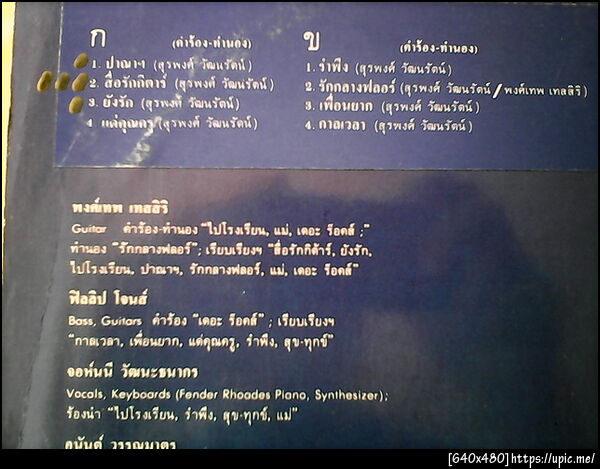 ก
(คำร้อง-ทำนอง)
1. ปาณาฯ (สุรพงศ์ วัฒนรัตน์)
2. สื่อรักกีตาร์ (สุรพงศ์ วัฒนรัตน์)
3. ยังรัก (สุรพงศ์ วัฒนรัตน์)
4 แด่คุณครู (สุรพงศ์ วัฒนรัตน์)
ข
(คำร้อง-ทำนอง)
1. รำพึง (สุรพงศ์ วัฒนรัตน์)
2. รักกลางฟลอร์ (สุรพงศ์ วัฒนรัตน์/พงศ์เทพ เทสสิริ)
3. เพื่อนยาก (สุรพงศ์ วัฒนรัตน์)
4. กาลเวลา (สุรพงศ์ วัฒนรัตน์)
พงศ์เทพ เทสสิริ
Guitar คำร้อง-ทำนอง "ไปโรงเรียน, แม่, เดอะ ร็อคส์ ;"
ทำนอง "รักกลางฟลอร์" ; เรียบเรียงฯ "สื่อรักกีต้าร์, ยังรัก,
ไปโรงเรียน, ปาณาฯ, รักกลางฟลอร์, แม่, เดอะ ร็อคส์"
ฟิลลิป โจนส์
Bass, Guitars คำร้อง "เดอะ ร็อคส์" ; เรียบเรียงฯ
"กาลเวลา, เพื่อนยาก, แด่คุณครู, รำพึง, สุข-ทุกข์"
จอห์นนี วัฒนะธนากร
Vocals, Keyboards (Fender Rhoades Piano, Synthesizer);
ร้องนำ "ไปโรงเรียน, รำพึง, สุข-ทุกข์, แม่"
อนันต์ วรรณมาตร
[640x480]https://upic.me/